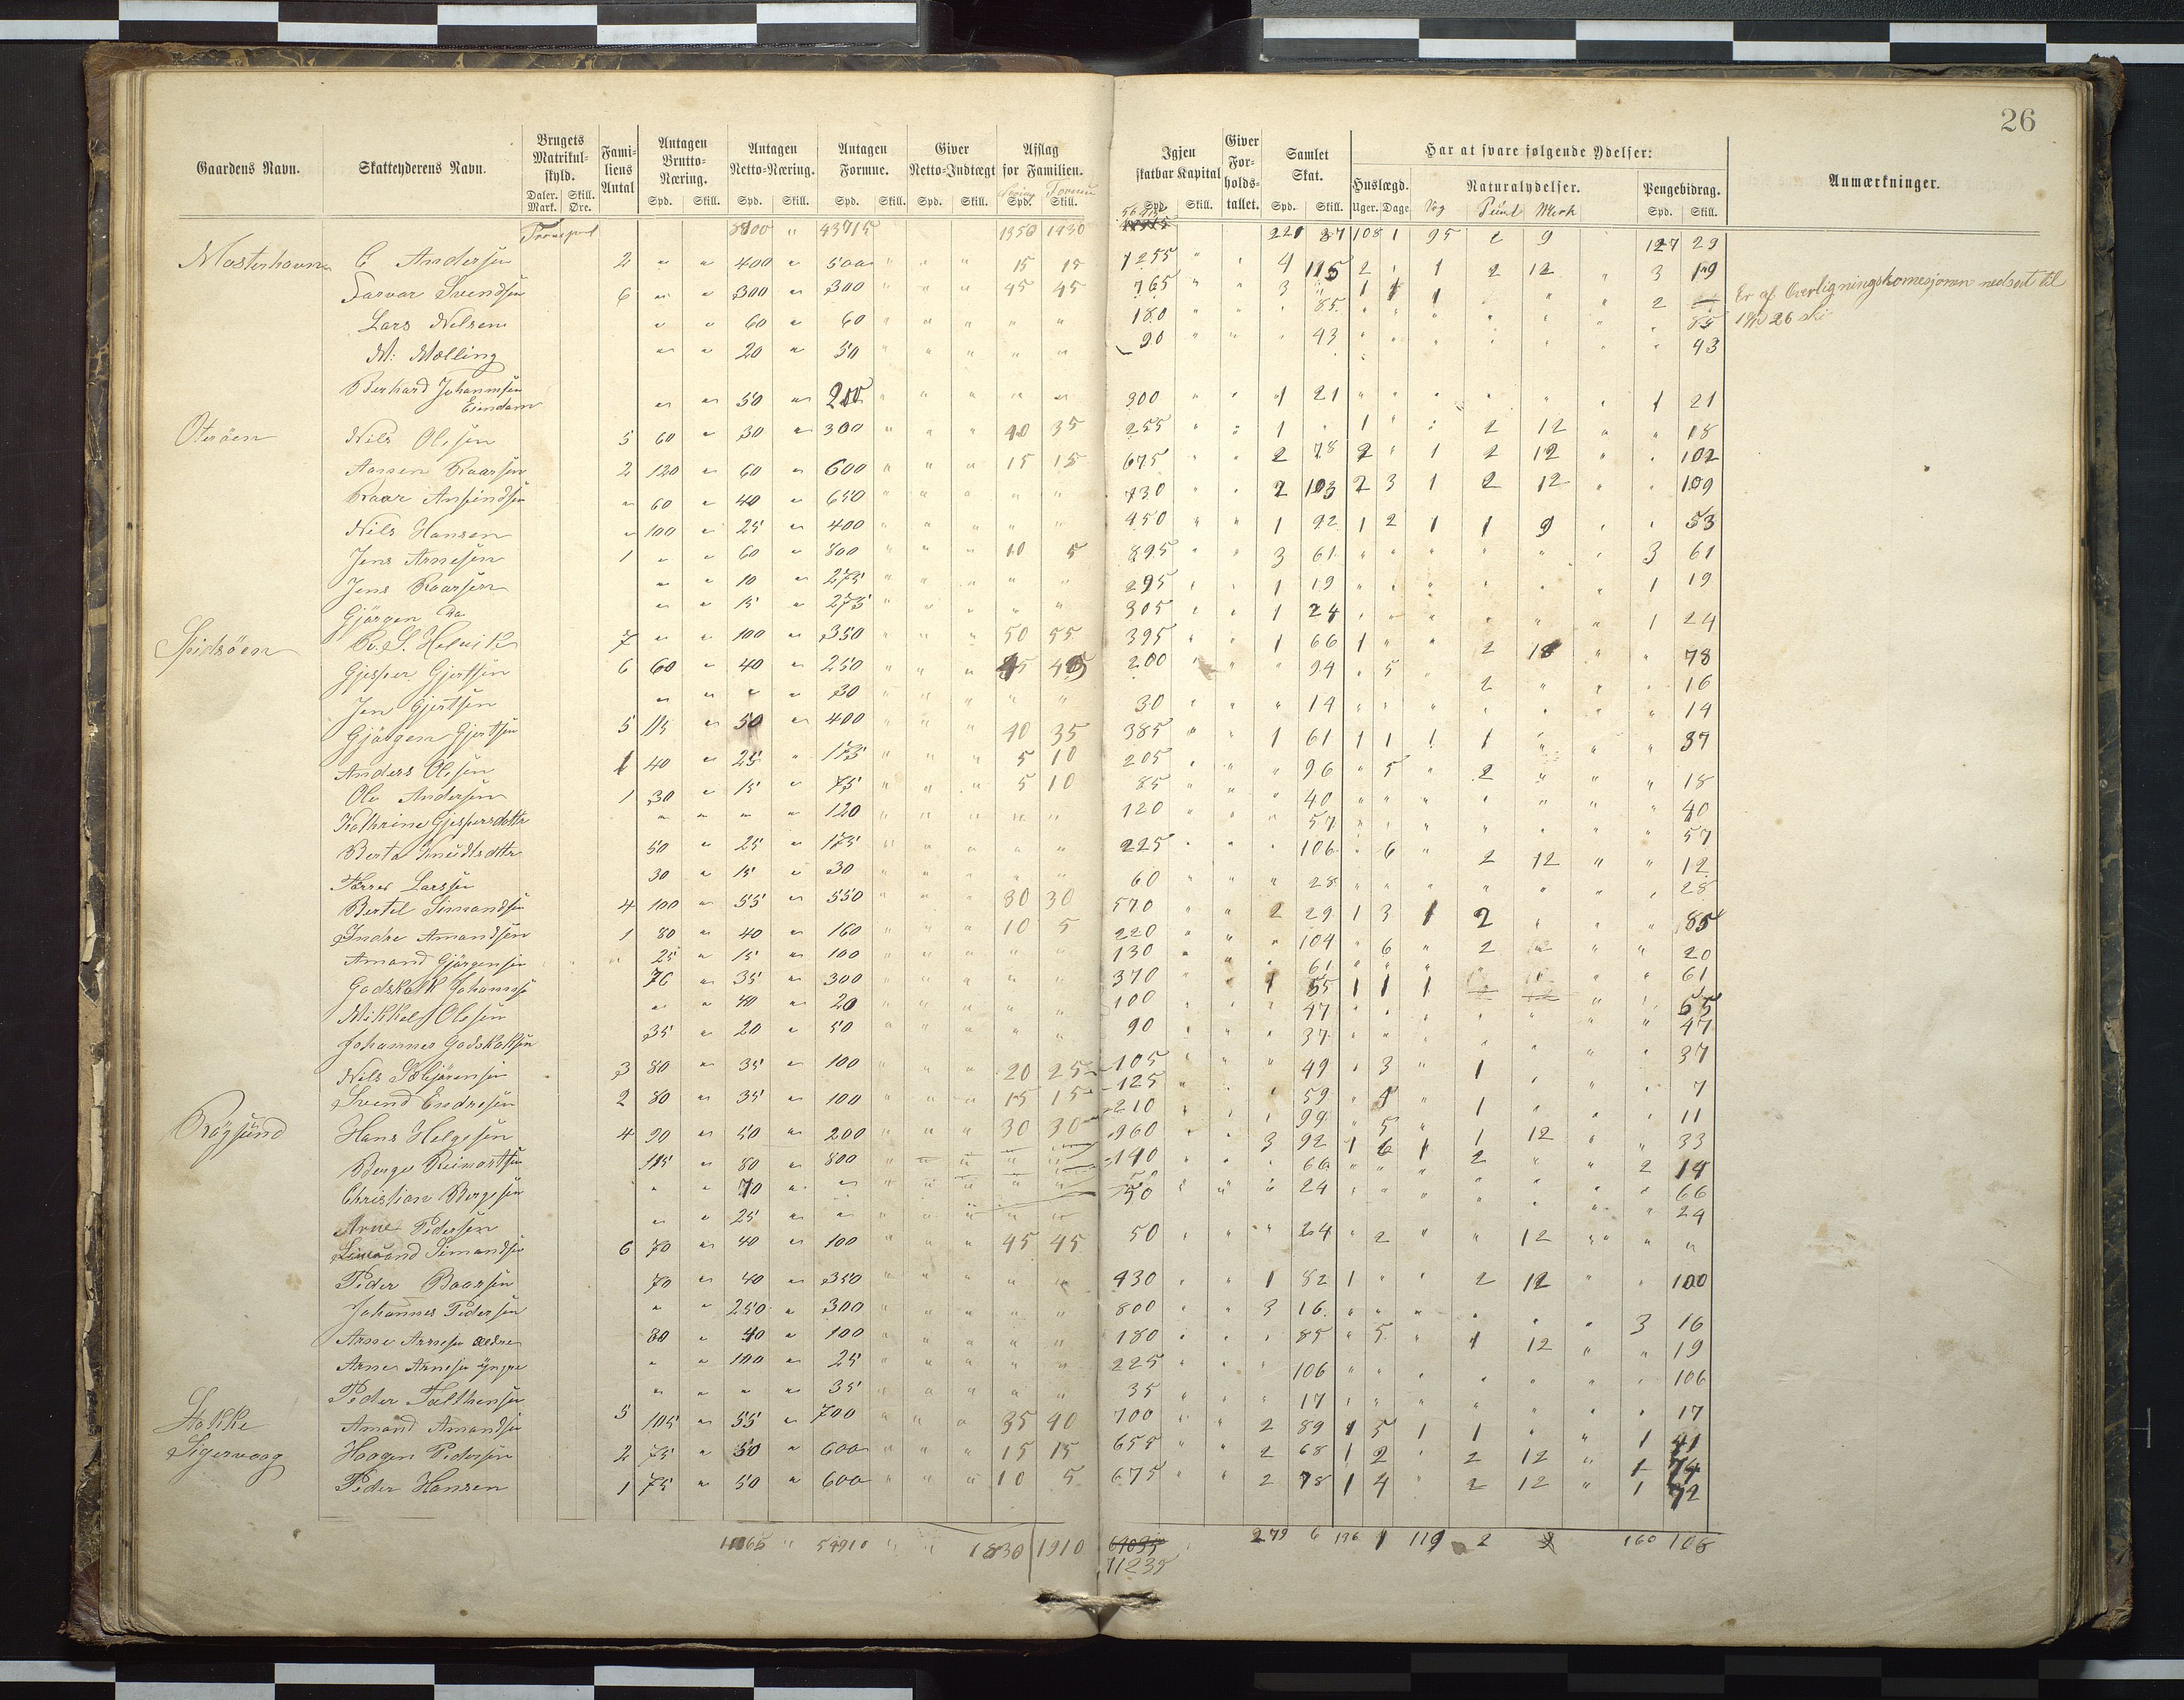 26
Gaardens Navn. Skatteyderens Navn. Brugets Matrikul-skyld. Daler. Mark. Skill. Øre. Familiens Antal Antagen Brutto-Næring. Spd. Skill. Antagen Netto-Næring. Spd. Skill. Antagen Formue. Spd. Skill. Giver Netto-Indtægt Spd. Skill. Afslag for Familien. Næring Spd. Formue Skill. Igjen skatbar Kapital Spd. Skill. Giver For-holds-tallet. Samlet Skat. Spd. Skill. Har at svare følgende Ydelser: Huslægd. Uger. Dage Naturalydelser. Vog Pund Merk Pengebidrag. Spd. Skill. Anmærkninger.
Transport 8900 " 43715 1356 1430 221 87 108 1 95 2 9 127 29
Mosterhavn C Andersen 2 " " 400 " 500 " " " 15 15 1255 " " 4 115 2 " 1 2 12 " 3 19
Svendsen 6 " " 300 " 300 " " " 45 45 765 " " 3 " 1 1 1 " " " 2 Er af Overligningskomesjonen nedsat til
Lars Nilsen " " 60 " 60 " " " " " 180 " " " 85 " " " " " " " 85 1 Spd 26 ski
M: Mølling " " 20 " 50 " " " " " 90 " " " 43 " " " " " " " 43
Berhard Johannesen
Eiendam " " 50 " 200 " " " " " 300 " " 1 21 " " " " " " 1 21
Oterøen Nils Olsen 5 60 " 30 " 300 " " " 40 35 255 " " 1 " 1 " " 2 12 " " 18
Aamen Roarsen 2 120 " 60 " 600 " " " 15 15 675 " " 2 78 2 " 1 2 12 " " 102
Roar Amundsen " 60 " 40 " 650 " " " " " 730 " " 2 103 2 3 1 2 12 " " 109
Nils Hansen " 100 " 25 " 400 " " " " " 450 " " 1 92 1 2 1 1 9 " " 53
Jens Arnesen 1 " " 60 " 800 " " " 10 5 895 " " 3 61 " " " " " " 3 61
Jens Roarsen " " 10 " 275 " " " " " 295 " " 1 19 " " " " " " 1 19
Gjørgen Do " " 15 " 275 " " " " " 305 " " 1 24 " " " " " " 1 24
Spidsøen B. S. Helvik 7 " " 100 " 350 " " " 50 55 395 " " 1 66 1 " " 2 18 " " 78
Gjesper Gjertsen 6 60 " 40 " 250 " " " 45 45 200 " " " 94 " 5 " 2 " " " 16
Jon Gjertsen " " " " 30 " " " " " 30 " " " 14 " " " " " " " 14
Gjørgen Gjertsen 5 115 " 50 " 400 " " " 40 35 385 " " 1 61 1 1 1 1 " " " 37
Anders Olsen 1 40 " 25 " 175 " " " 5 10 205 " " " 96 " 5 " 2 " " " 18
Ole Andersen 1 30 " 15 " 75 " " " 5 10 85 " " " 40 " " " " " " " 40
Kathrine Gjespersdatter " " " " 120 " " " " " 120 " " " 57 " " " " " " " 57
Berta Knudtsdttr 50 " 25 " 175 " " " " " 225 " " " 106 " 6 " 2 12 " " 12
Tørres Larssen 30 " 15 " 30 " " " " " 60 " " " 28 " " " " " " " 28
Bertel Simandsen 4 100 " 55 " 550 " " " 30 30 570 " " 2 29 1 3 1 2 " " " 85
Indre Amandsen 1 80 " 40 " 160 " " " 10 5 220 " " " 104 " 6 " 2 " " " 20
Amand Gjørgensen " 25 " 15 " 100 " " " " " 130 " " " 61 " " " " " " " 61
Godskalk Johannesen 76 " 35 " 300 " " " " " 370 " " 1 55 1 1 1 " " 65
Mikkel Olesen " " 40 " 20 " " " " " 100 " " " 47 " " " " " " " 47
Johannes Godskalksen 35 " 20 " 50 " " " " " 90 " " " 37 " " " " " " " 37
Nils 3 80 " 35 " 100 " " " 20 25 105 " " " 49 " 3 " 1 " " " 7
Svend Endresen 2 80 " 35 " 100 " " " 15 15 125 " " " 59 " 4 " 1 " " " 11
Røgsund Hans Helgesen 4 90 " 50 " 200 " " " 30 30 210 " " " 99 " 5 " 1 12 " " 33
Berge Reinertsen 115 " 80 " 800 " " " " " 960 " " 3 92 1 6 1 2 " " 2 14
Christian Bergesen " " 70 " " " " " " " 140 " " " 66 " " " " " " " 66
Arne Pedersen " " 25 " " " " " " " 50 " " " 24 " " " " " " " 24
Simand Simandsen 6 70 " 40 " 100 " " " 45 45 50 " " " 24 " 2 " " 12 " " "
Peder Roarsen 70 " 40 " 350 " " " " " 430 " " 1 82 1 " " 2 12 " " 100
Johannes Pedersen " " 250 " 300 " " " " " 800 " " 3 16 " " " " " " 3 16
Arne Arnesen ældre 80 " 40 " 100 " " " " " 180 " " " 85 " 5 " 1 12 " " 19
Arne Arnesen yngre " " 100 " 25 " " " " " 225 " " " 106 " " " " " " " 106
Peder Salthensen " " " " 35 " " " " " 35 " " " 17 " " " " " " " 17
Stokke Amand Amandsen 5 105 " 55 " 700 " " " 35 40 700 " " 2 89 1 5 1 1 " " 1 41
Sigervaag Haagen Pedersen 2 75 " 50 " 600 " " " 15 15 655 " " 2 68 1 2 " 2 12 " 1 74
Peder Hansen 1 75 " 50 " 600 " " " 10 5 675 " " 2 78 1 4 " 2 12 " 1 72
11065 " 54910 " " 1830 1910 69035 279 6 136 1 119 2 160 106
71235